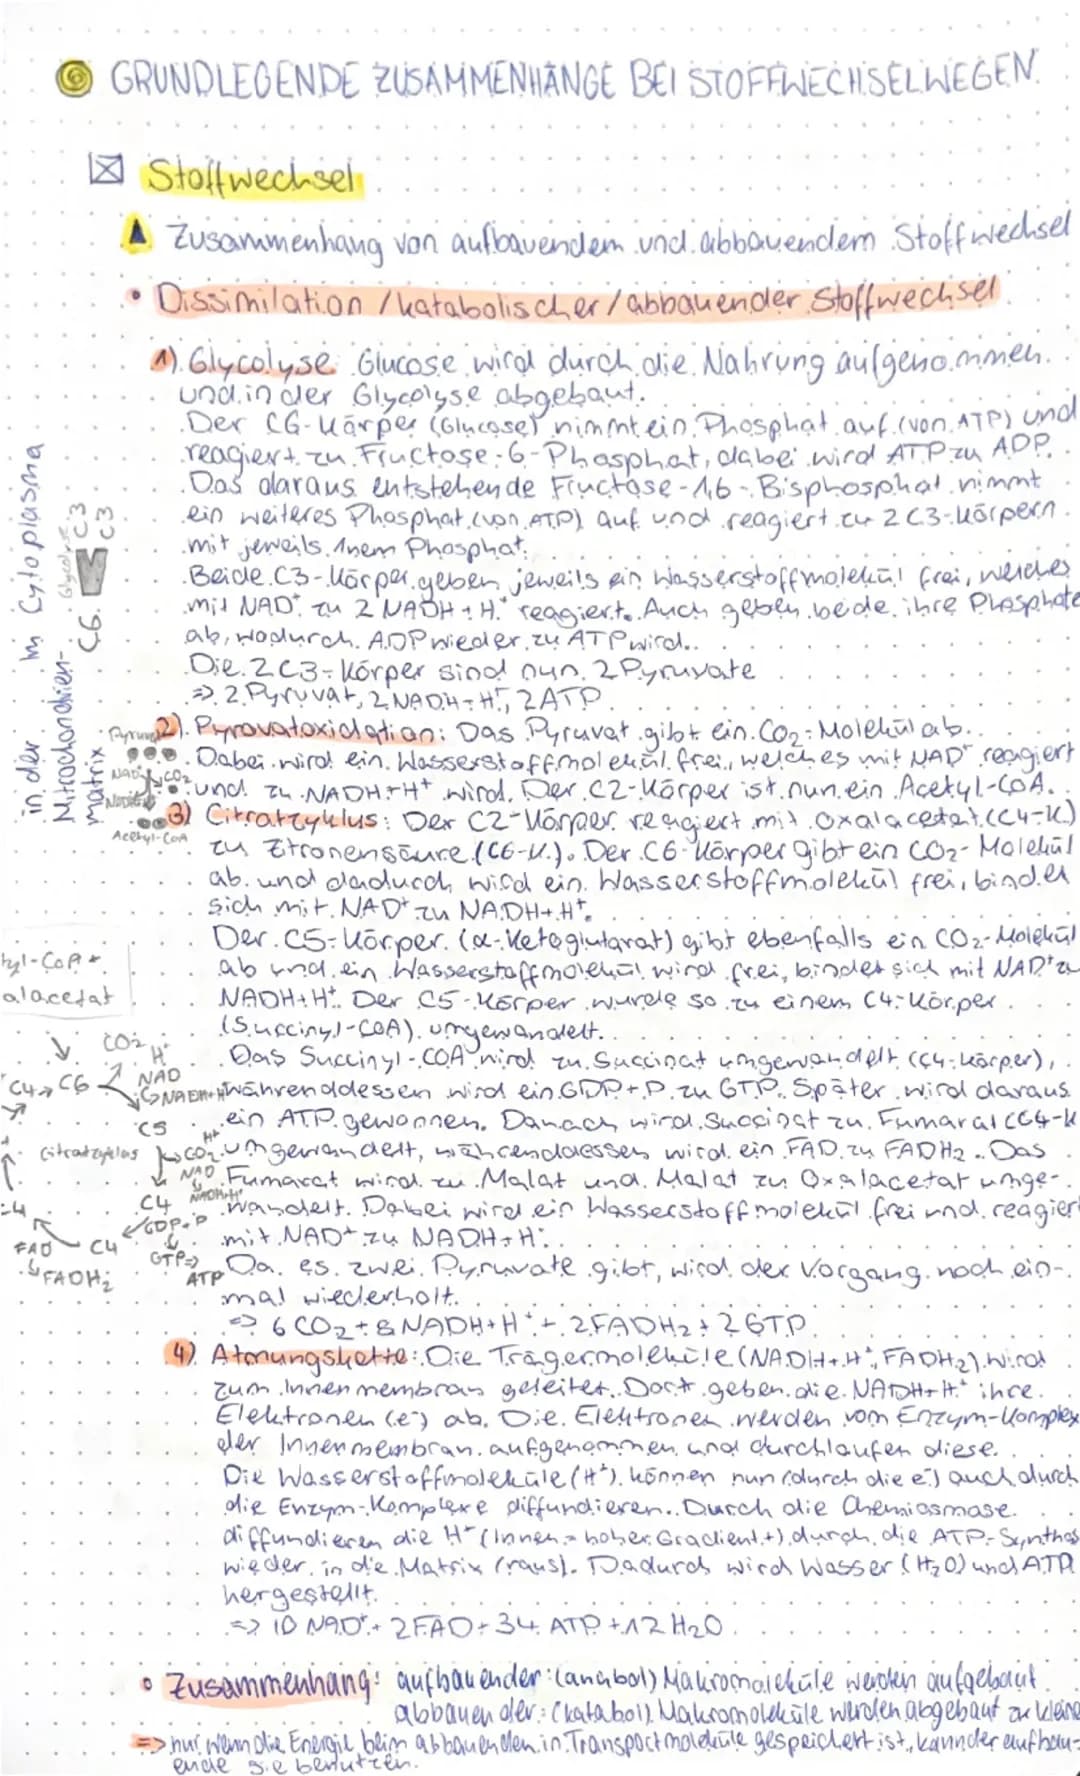 ⑥ GRUNDLEGENDE ZUSAMMENHÄNGE BEI STOFFWECHSELWEGEN
Stoffwechsel
Zusammenhang von aufbauendem und abbauendem Stoffwechsel
• Dissimilation / katabolischer / abbauender Stoffwechsel
1) Glycolyse: Glucose wird durch die Nahrung aufgenommen
und in der Glycolyse abgebaut.
Der C6-Körper (Glucose) nimmt ein Phosphat auf (von ATP) und
reagiert zu Fructose-6-Phosphat, dabei wird ATP zu ADP.
Das daraus entstehende Fructose-1,6-Bisphosphat nimmt
ein weiteres Phosphat (von ATP) auf und reagiert zu 2 C3-Körpern
mit jeweils 1nem Phosphat.
Beide C3-Körper geben jeweils ein Wasserstoffmolekül frei, welches
mit NAD⁺ zu 2 NADH+H⁺ reagiert. Auch geben beide ihre Phosphate
ab, wodurch ADP wieder zu ATP wird.
Die 2 C3-Körper sind nun 2 Pyruvate
=> 2 Pyruvat, 2 NADH+H⁺, 2 ATP
in der Mitochondrien-matrix
im Cytoplasma
C6 Glycolyse C3 C3
2) Pyrovatoxidation: Das Pyruvat gibt ein CO₂-Molekül ab.
Dabei wird ein Wasserstoffmolekül frei, welches mit NAD⁺ reagiert
und zu NADH+H⁺ wird. Der C2-Körper ist nun ein Acetyl-CoA.
Pyruvat
NAD⁺ CO₂
Acetyl-CoA
3) Citratzyklus: Der C2-Körper reagiert mit Oxalacetat (C4-K.)
zu Zitronensäure (C6-K.). Der C6-Körper gibt ein CO₂-Molekül
ab und dadurch wird ein Wasserstoffmolekül frei, bindet
sich mit NAD⁺ zu NADH+H⁺.
Der C5-Körper (α-Ketoglutarat) gibt ebenfalls ein CO₂-Molekül
ab und ein Wasserstoffmolekül wird frei, bindet sich mit NAD⁺ zu
NADH+H⁺. Der C5-Körper wurde so zu einem C4-Körper
(Succinyl-CoA) umgewandelt.
Das Succinyl-COA wird zu Succinat umgewandelt (C4-Körper),
währenddessen wird ein GDP+P zu GTP. Später wird daraus
ein ATP gewonnen. Danach wird Succinat zu Fumarat (C4-K
umgewandelt, währenddessen wird ein FAD zu FADH₂. Das
Fumarat wird zu Malat und Malat zu Oxalacetat umge-
wandelt. Dabei wird ein Wasserstoffmolekül frei und reagiert
mit NAD⁺ zu NADH+H⁺.
Da es zwei Pyruvate gibt, wird der Vorgang noch ein-
mal wiederholt.
=> 6 CO₂ + 8 NADH+H⁺ + 2 FADH₂ + 2 GTP
tyl-CoA +
alacetat
CO₂ H⁺
C4 → C6 NAD
NADH+H
C5
Citratzyklus CO₂ H⁺
NAD
NADH+H⁺
C4
GDP+P
GTP=>
ATP
C4
FAD C4
FADH₂
4) Atmungskette: Die Trägermoleküle (NADH+H⁺, FADH₂) wird
zum Innenmembran geleitet. Dort geben die NADH+H⁺ ihre
Elektronen (e⁻) ab. Die Elektronen werden vom Enzym-Komplex
der Innenmembran aufgenommen und durchlaufen diese.
Die Wasserstoffmoleküle (H⁺) können nun (durch die e⁻) auch durch
die Enzym-Komplexe diffundieren. Durch die Chemiosmose
diffundieren die H⁺ (Innen = hoher Gradient +) durch die ATP-Synthas
wieder in die Matrix (raus). Dadurch wird Wasser (H₂O) und ATP
hergestellt.
=> 10 NAD⁺ + 2 FAD + 34 ATP + 12 H₂O
• Zusammenhang: aufbauender: (anabol) Makromoleküle werden aufgebaut
abbauender: (katabol) Makromoleküle werden abgebaut zu kleine
=> nur wenn die Energie beim abbauenden in Transportmoleküle gespeichert ist, kann der aufbau-
ende sie benutzen.